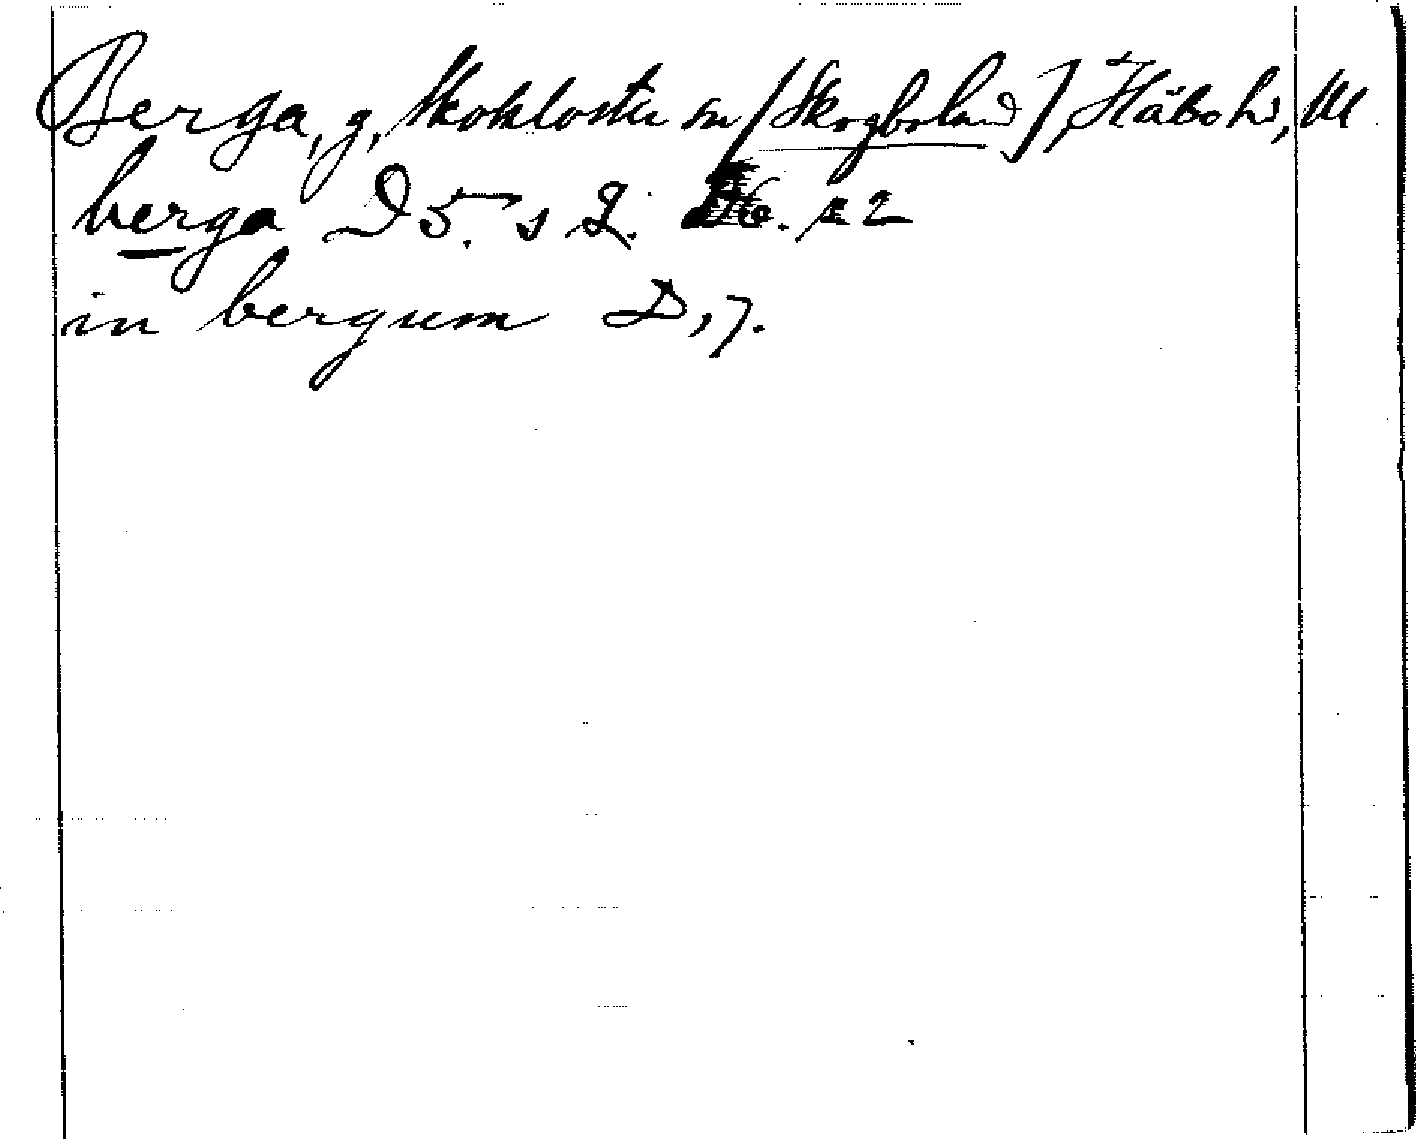 Berga, g, Skokloster sn [Skogboland], Håbo hd, U
berga D 5. s 2. 6. 22
in bergum D, 7.